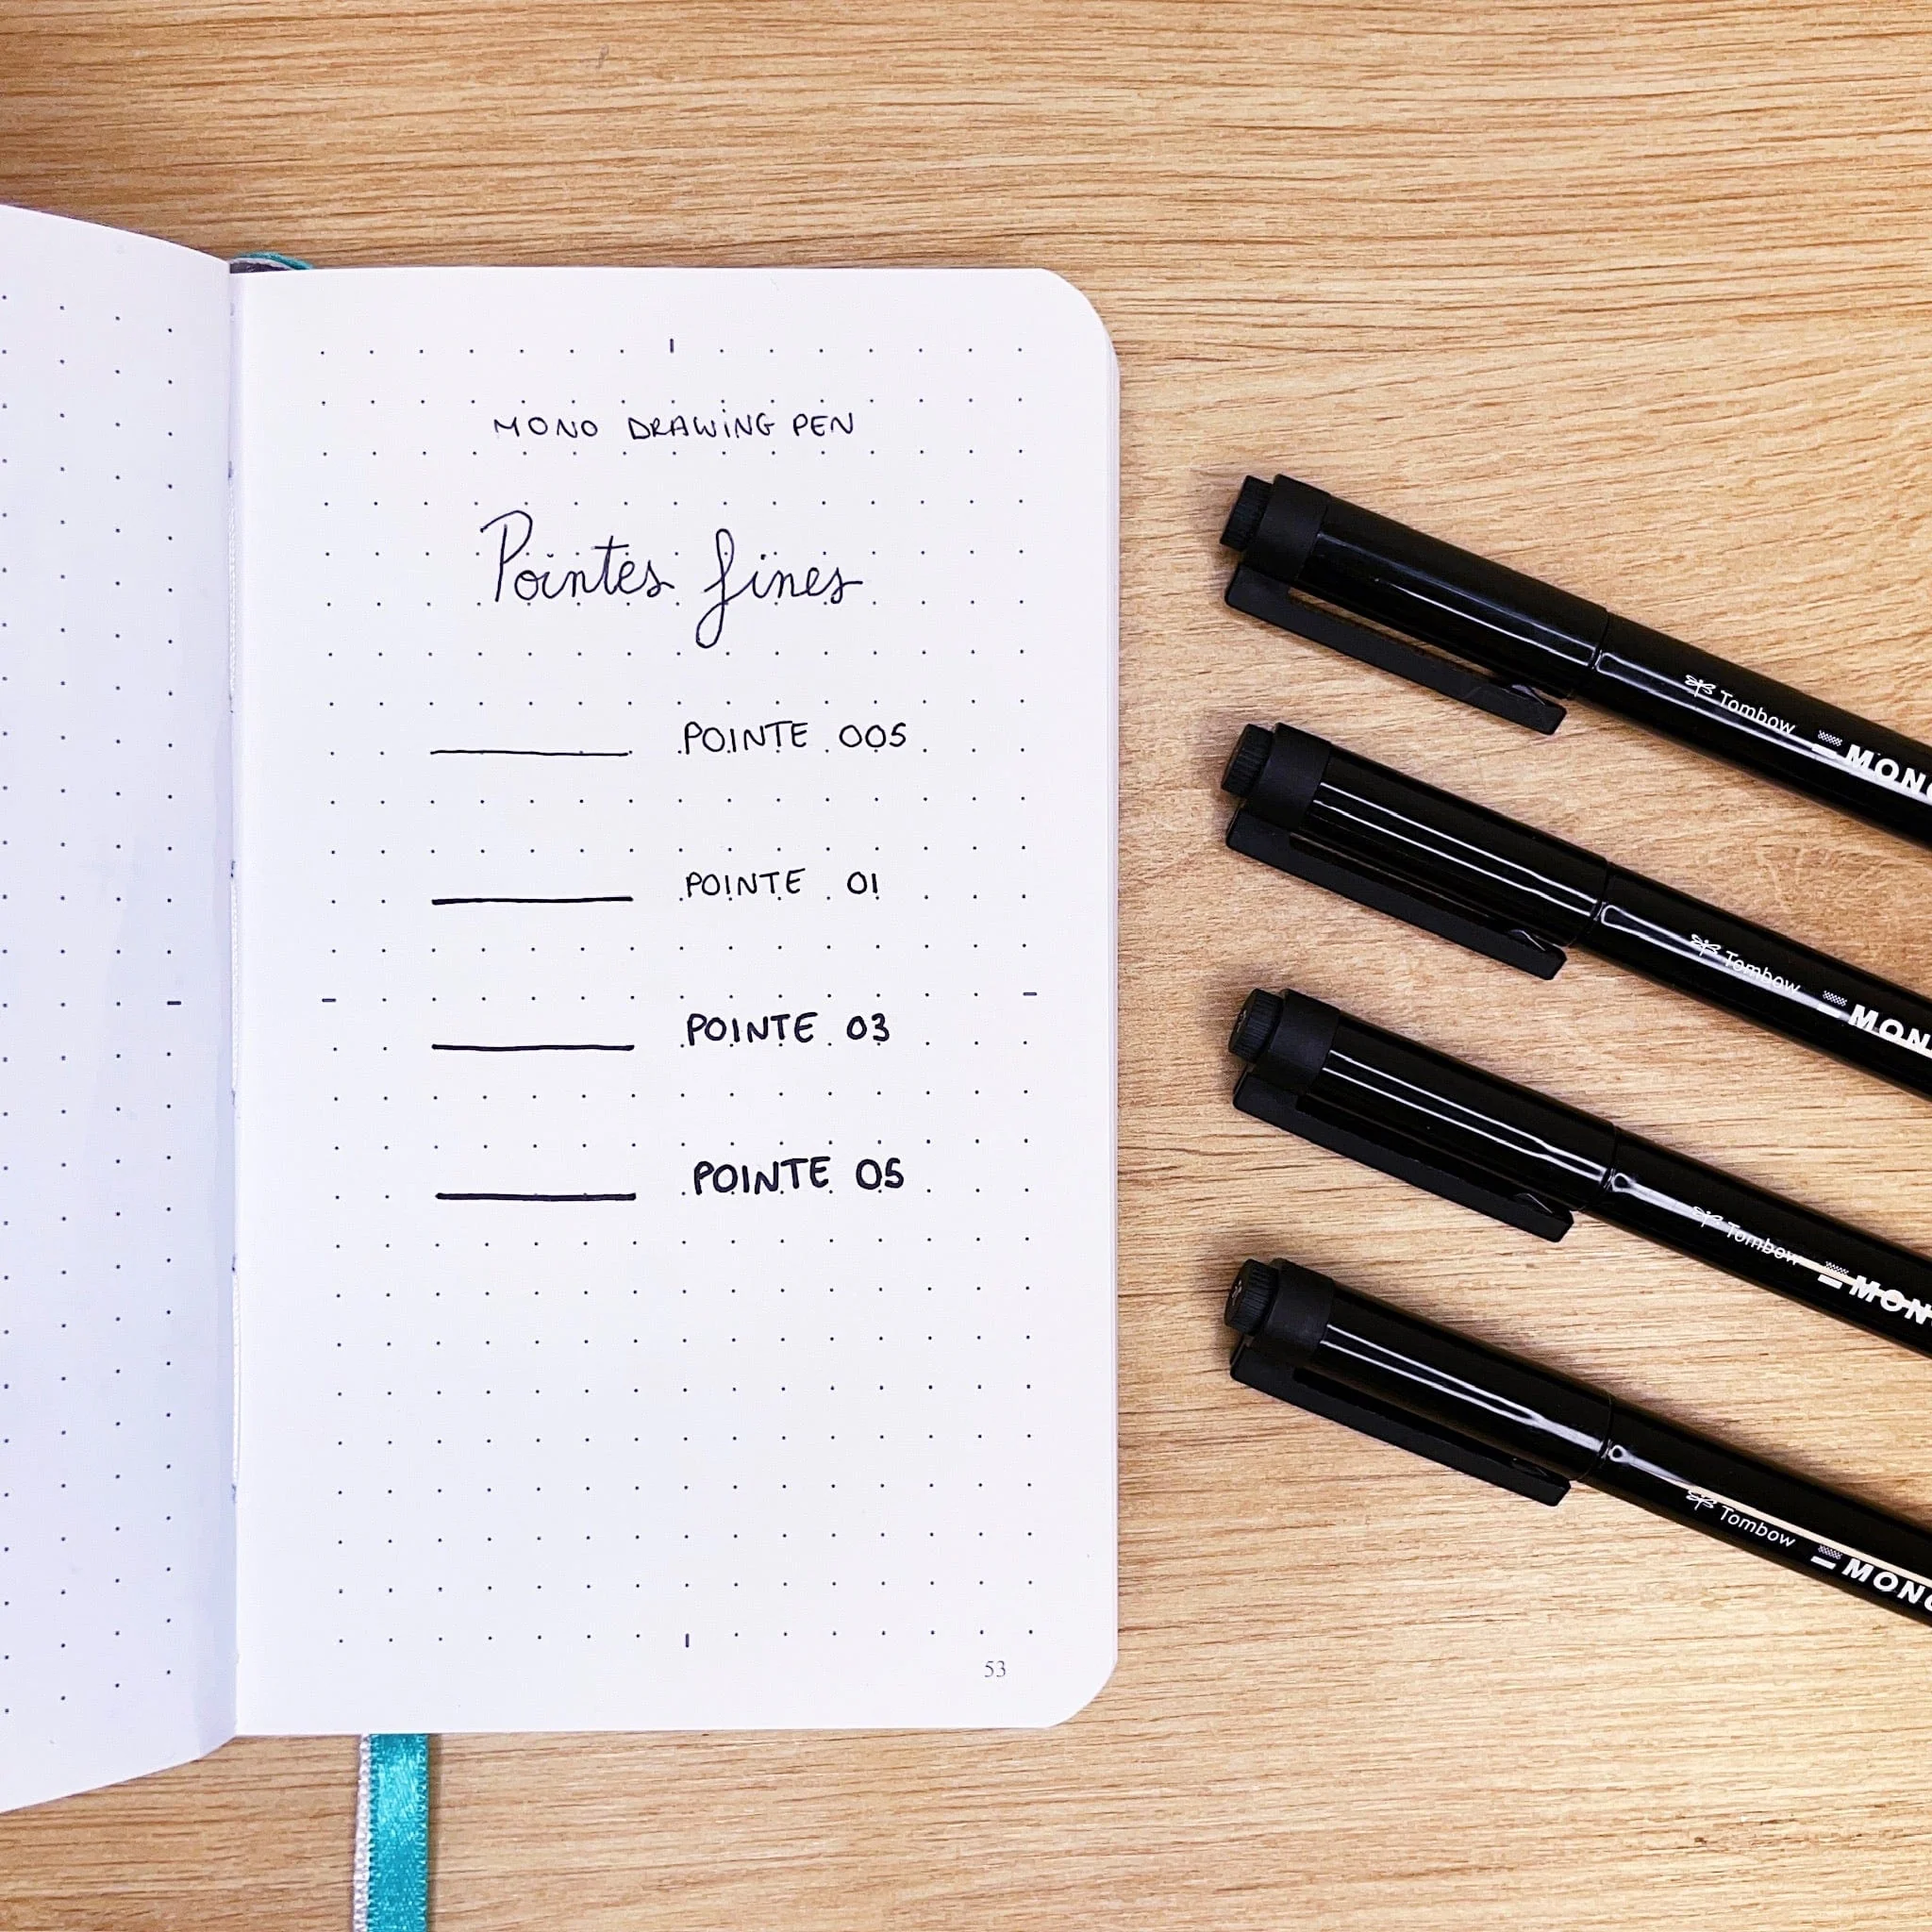 MONO DRAWING PEN
Pointes fines
POINTE 005
POINTE 01
POINTE 03
POINTE 05
53
Tombow MONO
Tombow MON
Tombow MON
Tombow MONO